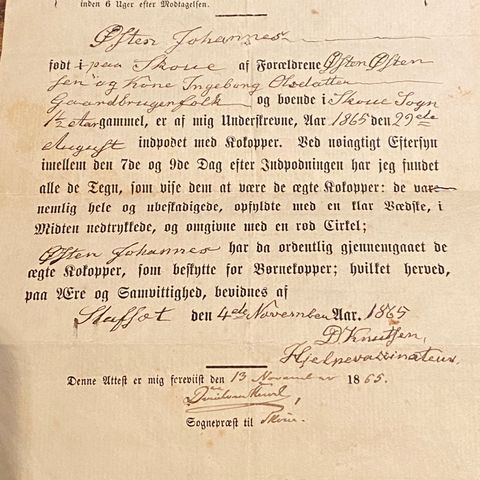 inden 6 Uger efter Modtagelsen.
Østen Johannes
født i paa Skoue af Forældrene Østen Østen
sen og Kone Ingeborg Olsdatter
Gaardbrugerfolk og boende i Skoue Sogn
1/2 etar gammel, er af mig Underskrevne, Aar 1865 den 29de
August indpodet med Kokopper. Ved noiagtigt Eftersyn
imellem den 7de og 9de Dag efter Indpodningen har jeg fundet
alle de Tegn, som vise dem at være de ægte Kokopper: de vare
nemlig hele og ubeskadigede, opfyldte med en klar Vædske, i
Midten nedtrykkede, og omgivne med en rød Cirkel;
Østen Johannes har da ordentlig gjennemgaaet de
ægte Kokopper, som beskytte for Børnekopper; hvilket herved,
paa Ære og Samvittighed, bevidnes af
den 4de November Aar. 1865
D Knutsen,
Hjelpevaccinateur.
Denne Attest er mig foreviist den 13 November 1865.
Sognepræst til Skoue.